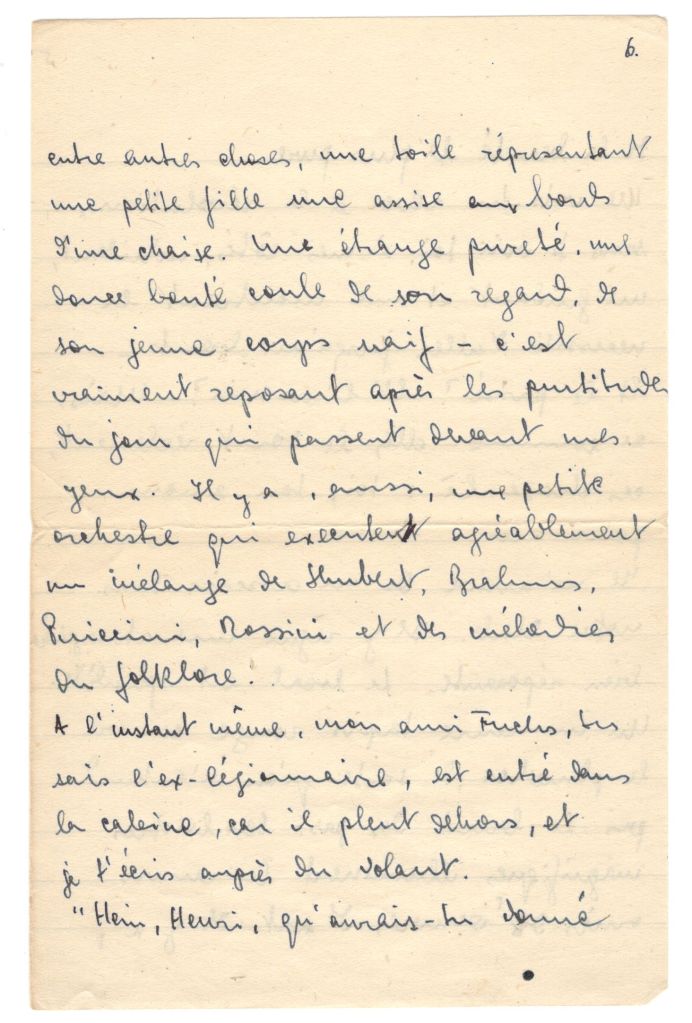 6.
entre autres choses, une toile répresentant
une petite fille nue assise aux bords
d'une chaise. Une étrange pureté, une
douce bonté coule de son regard, de
son jeune corps naïf – c'est
vraiment reposant après les putitudes
du jour qui passent devant mes
yeux. Il y a, aussi, une petite
orchestre qui executent agréablement
un mélange de Shubert, Brahms,
Puiccini, Rossini et des mélodies
du folklore.
A l'instant même, mon ami Fuchs, tu
sais l'ex-légionnaire, est entré dans
la cabine, car il pleut dehors, et
je t'écris auprès du volant.
"Hein, Henri, qu'aurais-tu donné